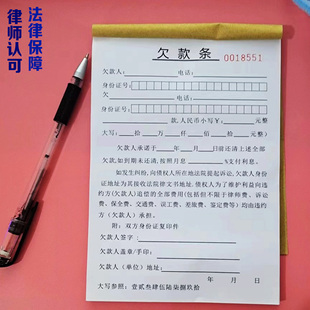 法律保障
律师认可
欠款条
0018551
欠款人：电话：
身份证号：
欠电话：
身份证号：
款,人民币小写￥：元整
大写：拾万仟佰拾元整）
欠款人承诺于年月日前还清上述全部
欠款,如到期未还清,按照月息%支付利息。
如发生纠纷,向债权人所在地法院提起诉讼,欠款人身份
证地址为其接收法院律文书地址,债权人为了维护利益向违
约方(欠款人)追偿的全部费用(包括但不限于律师费、诉讼
费、保全费、交通费、误工费、差旅费、鉴定费等)均由违约
方（欠款人）承担。
附：双方身份证复印件
欠款人签字：
欠款人盖章/手印：
欠款人（单位）地址：
年月日
大写参照：壹贰叁肆伍陆柒捌玖拾